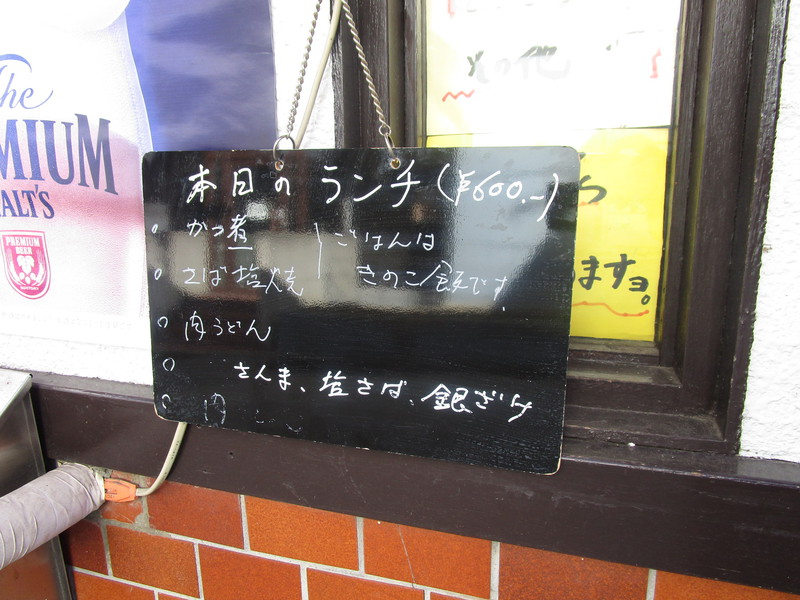 The
PREMIUM
MALT'S
PREMIUM
BEER
その他
ますヨ。
本日の ランチ(¥600.~)
○ かつ煮
○ さば塩焼
ごはんは
きのこ飯です
○ 肉うどん
○ さんま、塩さば、銀ざけ